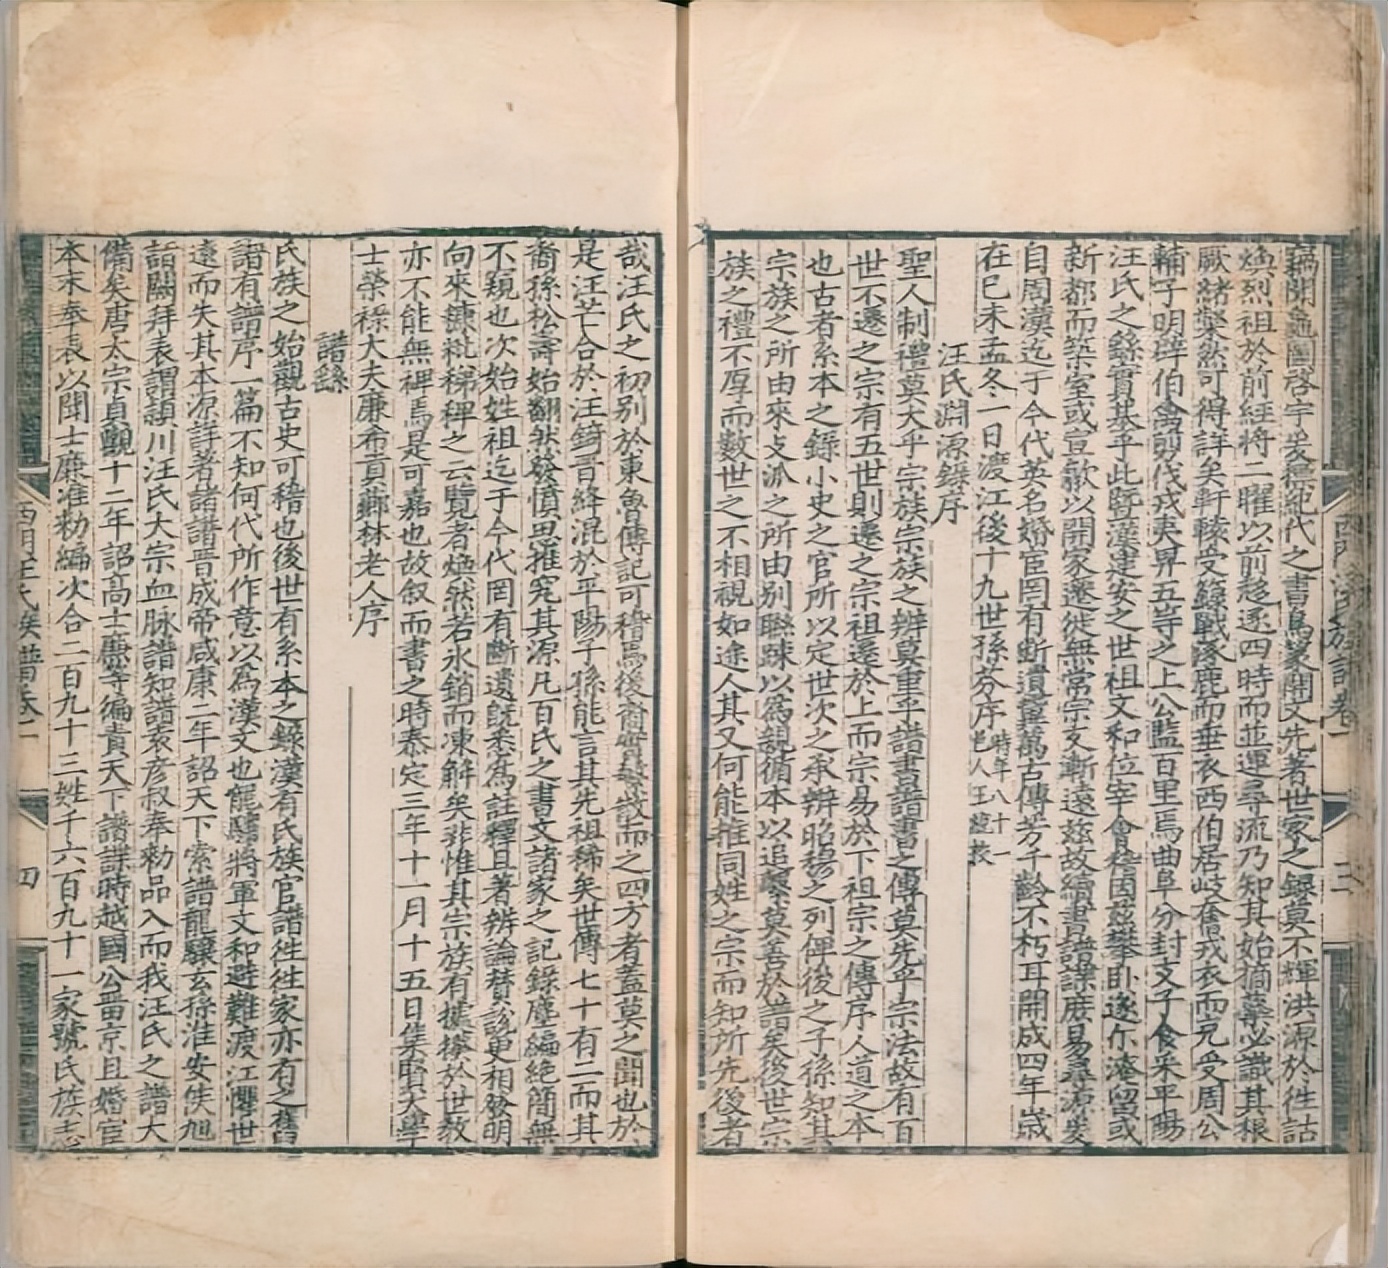 竊聞龜圖啓宇爰標紀代之書鳥篆開文先著世家之錄莫不輝洪源於往詁
煥烈祖於前經將二曜以前趍逐四時而並運尋流乃知其始摘蘂必識其根
厥緒粲然可得詳矣軒轅受籙戰涿鹿而垂衣西伯居岐奮戎衣而兄受周公
輔子明辟伯禽剪伐戎夷畀五等之上公監百里焉曲阜分封支子食采平陽
汪氏之繇實基乎此暨漢建安之世祖文和位宰會稽因茲攀臥遂尓淹留或
新都而築室或宣歙以開家遷徙無常宗支漸遠茲故續書譜諜庶易尋源爰
自周漢迄于今代英名婚宦罔有斷遺冀萬古傳芳千齡不朽耳開成四年歲
在己未孟冬一日渡江後十九世孫芬序 時年八十一
邑人王 校
汪氏淵源錄序
聖人制禮莫大乎宗族宗族之辨莫重乎譜書譜書之傳莫先乎宗法故有百
世不遷之宗有五世則遷之宗祖遷於上而宗易於下祖宗之傳序人道之本
也古者系本之錄小史之官所以定世次之承辨昭穆之列俾後之子孫知其
宗族之所由來支派之所由别聯踈以為親循本以追繫莫善於譜矣後世宗
族之禮不厚而數世之不相視如途人其又何能推同姓之宗而知所先後者
西門汪氏族譜卷一
三
哉汪氏之初别於東魯傳記可稽焉後裔實繁散而之四方者蓋莫之聞也於
是汪芒合於汪錡音絳混於平陽子孫能言其先祖稀矣世傳七十有二而其
裔孫松壽始翻然發憤思推究其源凡百氏之書文諸家之記錄塵編絶簡無
不窺也次始姓祖迄于今代罔有斷遺旣悉為註釋且著辨論贊說更相發明
向來糠粃稊稗之云覽者煥然若氷銷而凍解矣非惟其宗族有據於世教
亦不能無裨焉是可嘉也故叙而書之時泰定三年十一月十五日集賢大學
士榮祿大夫廉希貢薌林老人序
譜錄
氏族之始觀古史可稽也後世有系本之錄漢有氏族官譜徃徃家亦有之舊
譜有譜序一篇不知何代所作意以為漢文也龍驤將軍文和避難渡江懼世
遠而失其本源詳著諸譜晋成帝咸康二年詔天下索譜龍驤玄孫淮安侯旭
詣闕拜表謂頴川汪氏大宗血脉譜知譜袁彦叔奉勑品入而我汪氏之譜大
備矣唐太宗貞觀十二年詔高士廉等編責天下譜諜時越國公畱京且婚宦
本末奉表以聞士廉准勑編次合二百九十三姓千六百九十一家號氏族志
西門汪氏族譜卷一
四